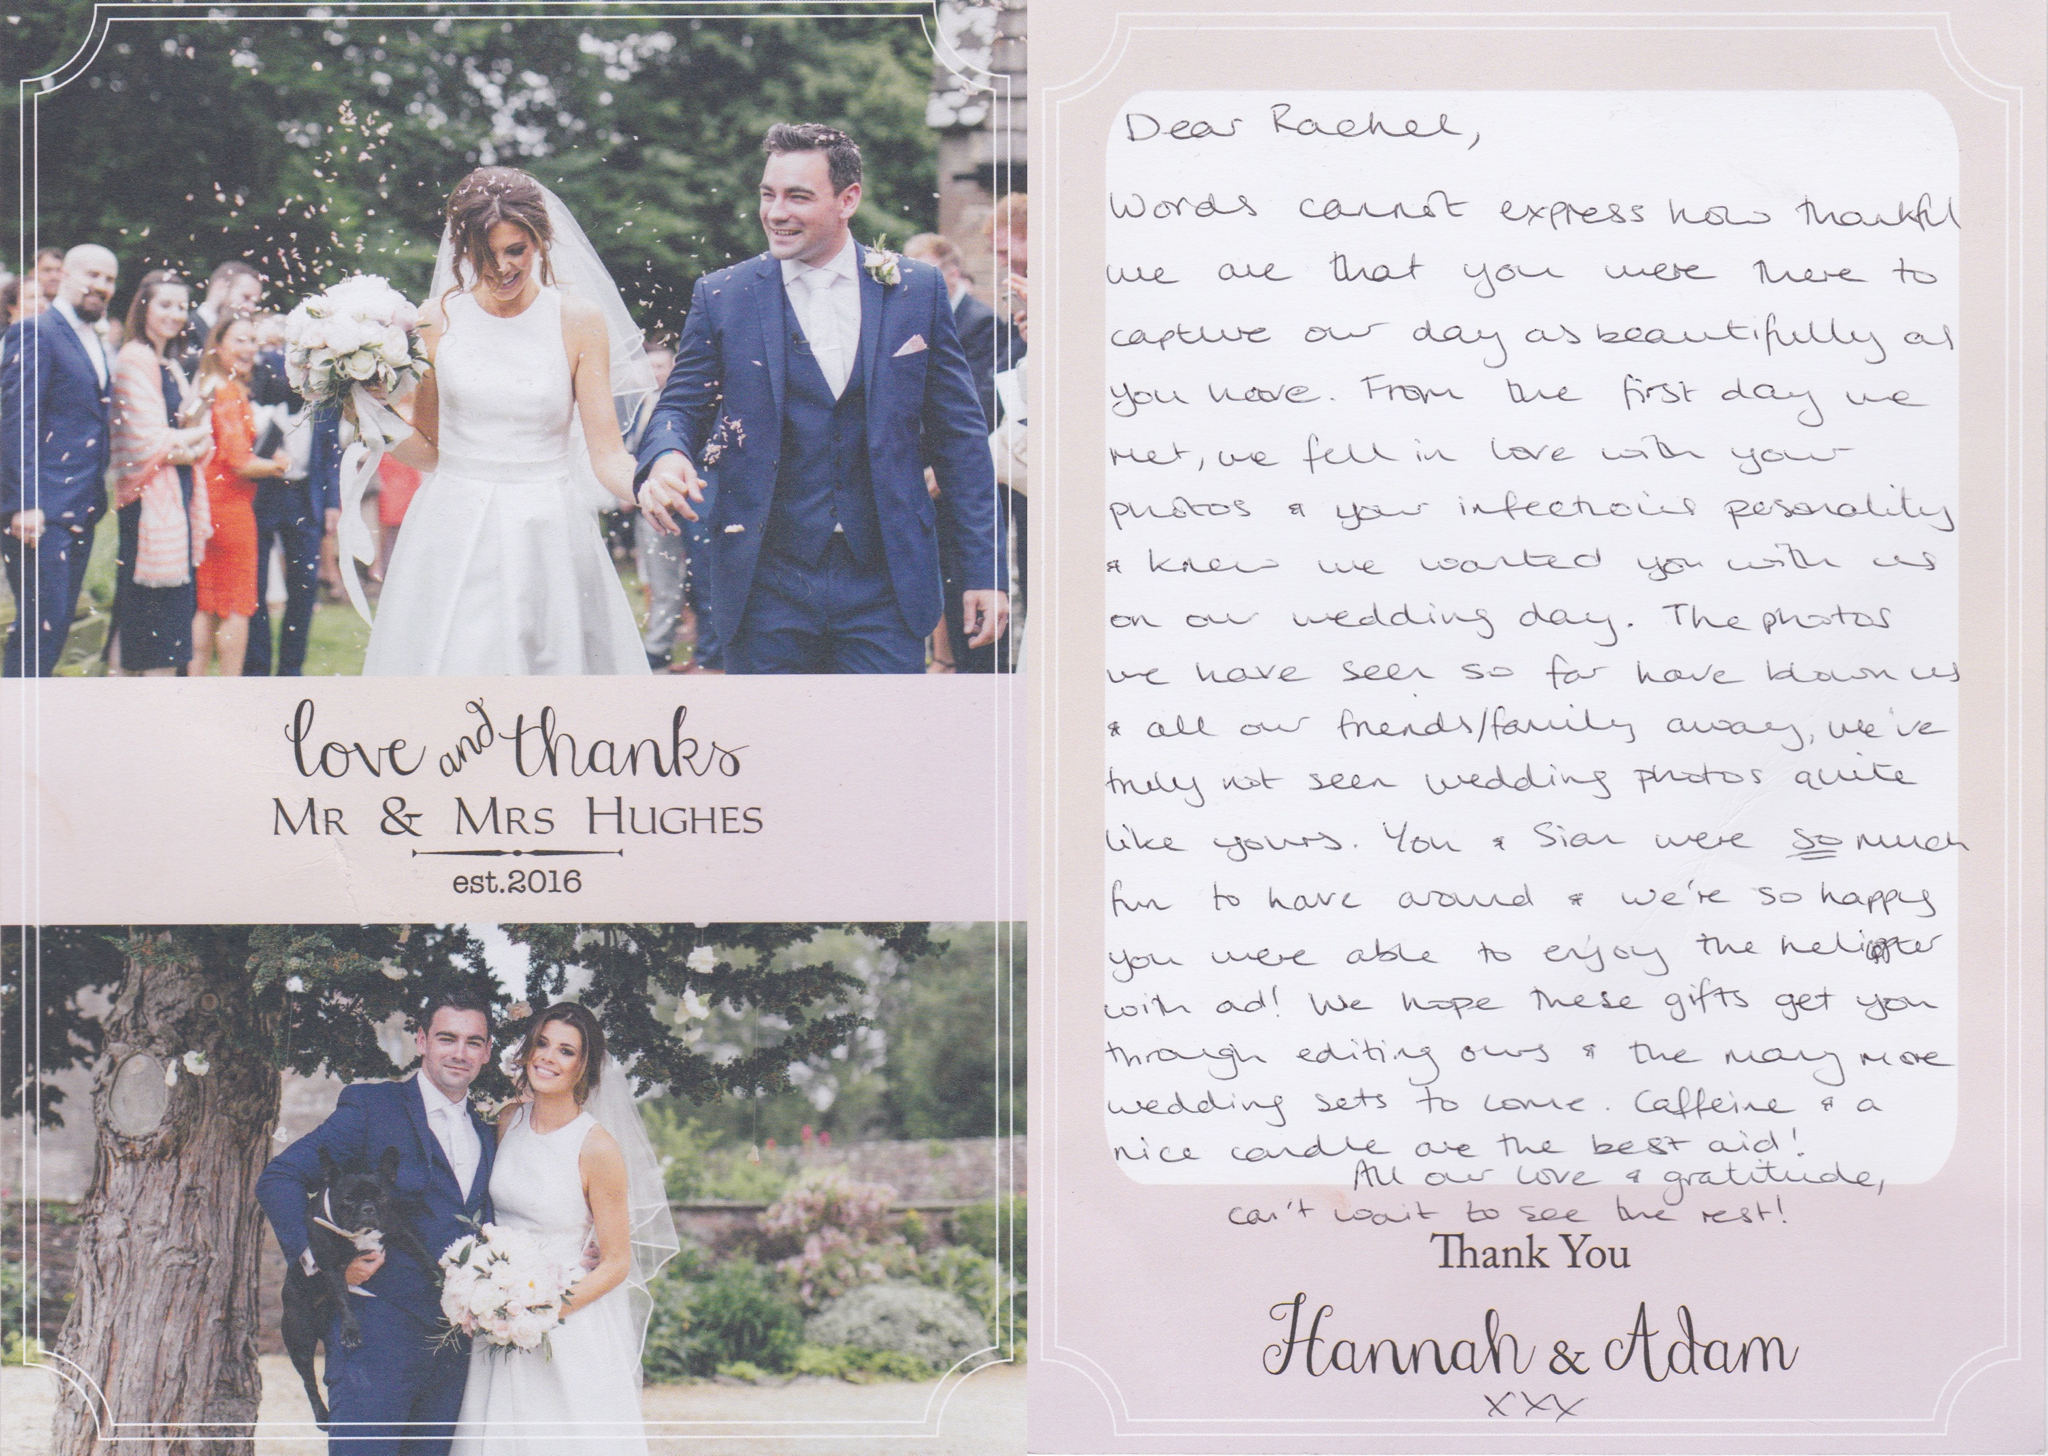 love and thanks
MR & MRS HUGHES
est.2016
Dear Rachel,
Words cannot express how thankful
we are that you were there to
capture our day as beautifully as
you have. From the first day we
met, we fell in love with your
photos & your infectious pesonality
& knew we wanted you with us
on our wedding day. The photos
we have seen so far have blown us
& all our friends/family away, we've
truly not seen wedding photos quite
like yours. You & Sian were so much
fun to have around & we're so happy
you were able to enjoy the helicopter
with ad! We hope these gifts get you
through editing ours & the many more
wedding sets to come. Caffeine & a
nice candle are the best aid!
All our love & gratitude,
can't wait to see the rest!
Thank You
Hannah & Adam
xxx